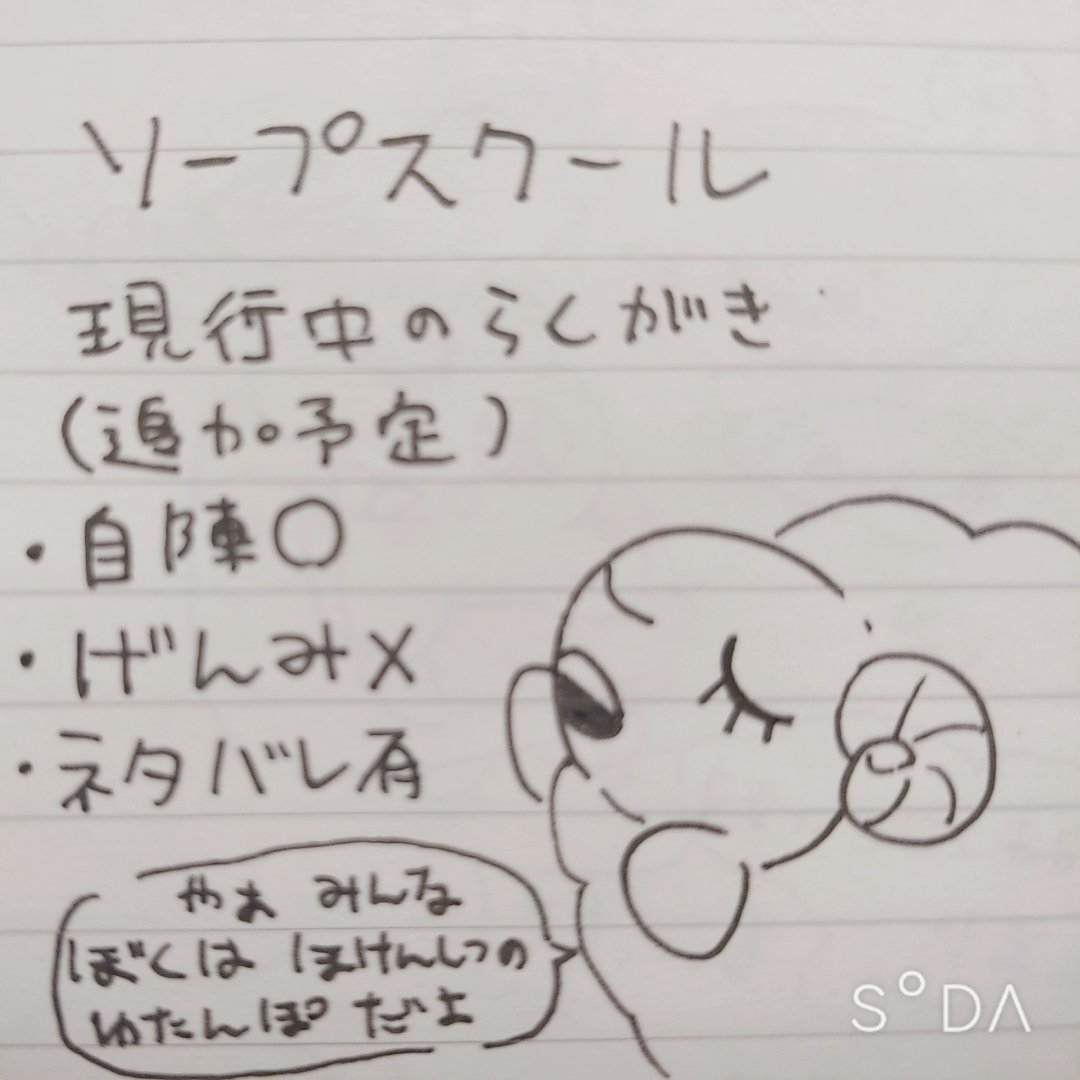 ソープスクール
現行中のらくがき
(追加予定)
・自陣○
・げんみ×
・ネタバレ有
やぁ みんな
ぼくは ほけんしつの
ゆたんぽ だよ
SODA